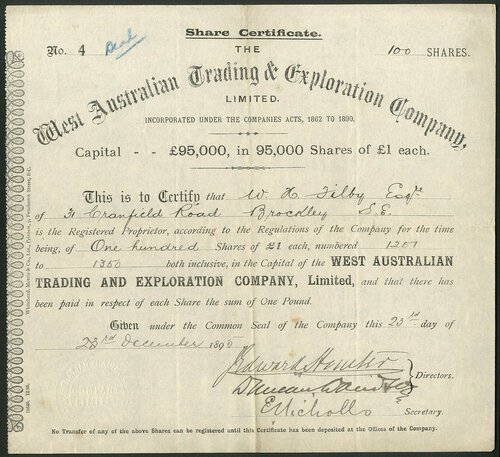 Share Certificate.
No. 4
100 SHARES.
THE
West Australian Trading & Exploration Company,
LIMITED.
INCORPORATED UNDER THE COMPANIES ACTS, 1862 TO 1890.
Capital - - £95,000, in 95,000 Shares of £1 each.
This is to Certify that W. H. Filby Esqre
of 31 Cranfield Road Brockley S.E.
is the Registered Proprietor, according to the Regulations of the Company for the time
being, of One hundred Shares of £1 each, numbered 1251
to 1350 both inclusive, in the Capital of the WEST AUSTRALIAN
TRADING AND EXPLORATION COMPANY, Limited, and that there has
been paid in respect of each Share the sum of One Pound.
Given under the Common Seal of the Company this 23rd day of
23rd December 1895
Directors.
E Nicholls
Secretary.
No Transfer of any of the above Shares can be registered until this Certificate has been deposited at the Offices of the Company.